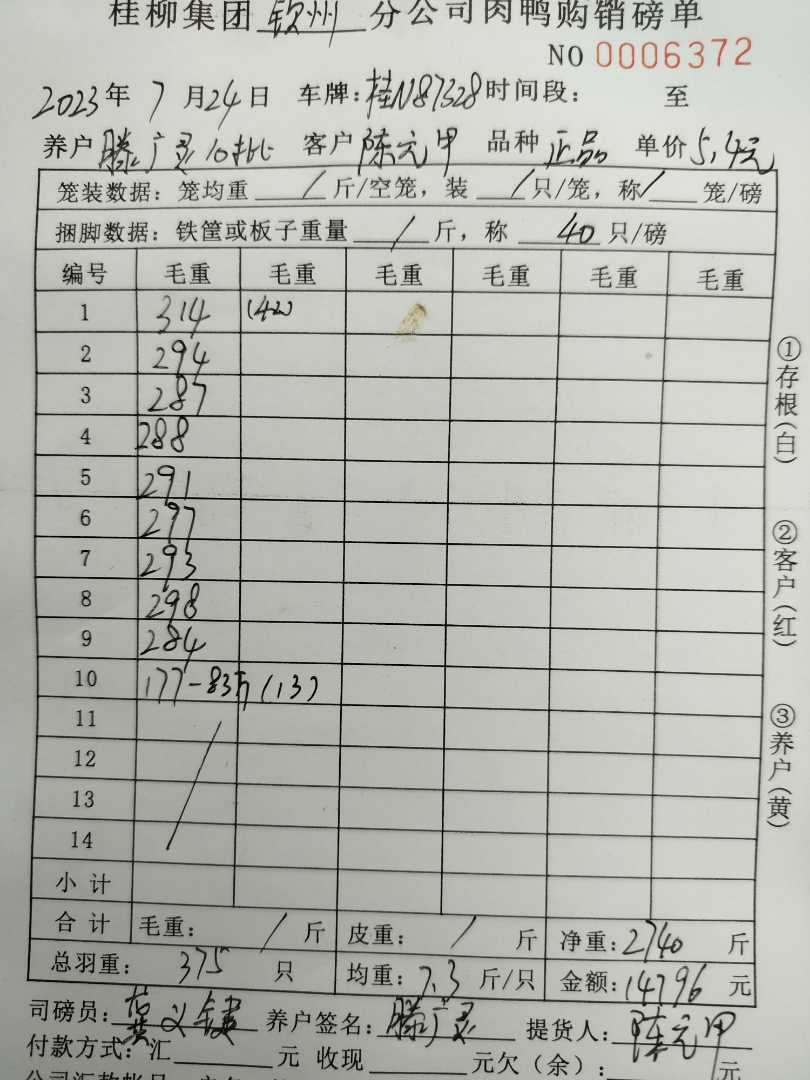 桂柳集团 钦州 分公司肉鸭购销磅单
NO 0006372
2023年 7月24日 车牌:桂N87328 时间段: 至
养户 滕广灵10批 客户 陈元甲 品种 正品 单价5.4元
笼装数据: 笼均重 / 斤/空笼, 装 / 只/笼, 称 / 笼/磅
捆脚数据: 铁筐或板子重量 / 斤, 称 40 只/磅
编号 毛重 毛重 毛重 毛重 毛重 毛重
1 314 (42)
2 294
3 287
4 288
5 291
6 297
7 293
8 298
9 284
10 177-83斤(13)
11
12
13
14
小计
合计 毛重: / 斤 皮重: / 斤 净重:2740 斤
总羽重: 375 只 均重:7.3 斤/只 金额:14796 元
司磅员: 黄义键 养户签名: 滕广灵 提货人: 陈元甲
付款方式: 汇 元 收现 元欠(余): 元
①存根(白)
②客户(红)
③养户(黄)